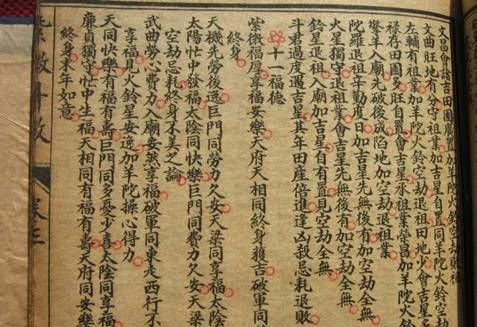 文昌會諸吉田園廣置加羊陀火鈴空劫敗祖
文曲旺地有分守祖業加吉星自置同羊陀火鈴空劫
左輔有祖業加羊陀火鈴空劫退祖田地少會吉星
祿存田園多旺自置會吉星承祖業榮昌加羊陀火鈴
擎羊入廟先破後成陷地加空劫退祖業
陀羅退祖辛勤度日加吉星先無後有加空劫全無
火星獨守退祖業會吉星先無後有加空劫全無
鈴星退祖入廟加吉星自有置見空劫全無
斗君過度遇吉星其年田産倍進逢凶殺忌耗退敗
十一福德
紫微福厚享福安樂天府天相同終身獲吉破軍同
終身
天機先勞後逸巨門同勞力欠安天梁同享福太陰
太陽忙中發福太陰同快樂巨門同費力欠安天梁
空劫忌耗終身不美之論
武曲勞心費力入廟安然享福破軍同東走西行不
享福見火鈴星安逸加羊陀操心得力
天同快樂有福有壽巨門同多憂少喜太陰同享福
廉貞獨守忙中生福天相同有福有壽天府同安樂
終身末年如意
紫微斗數 卷三